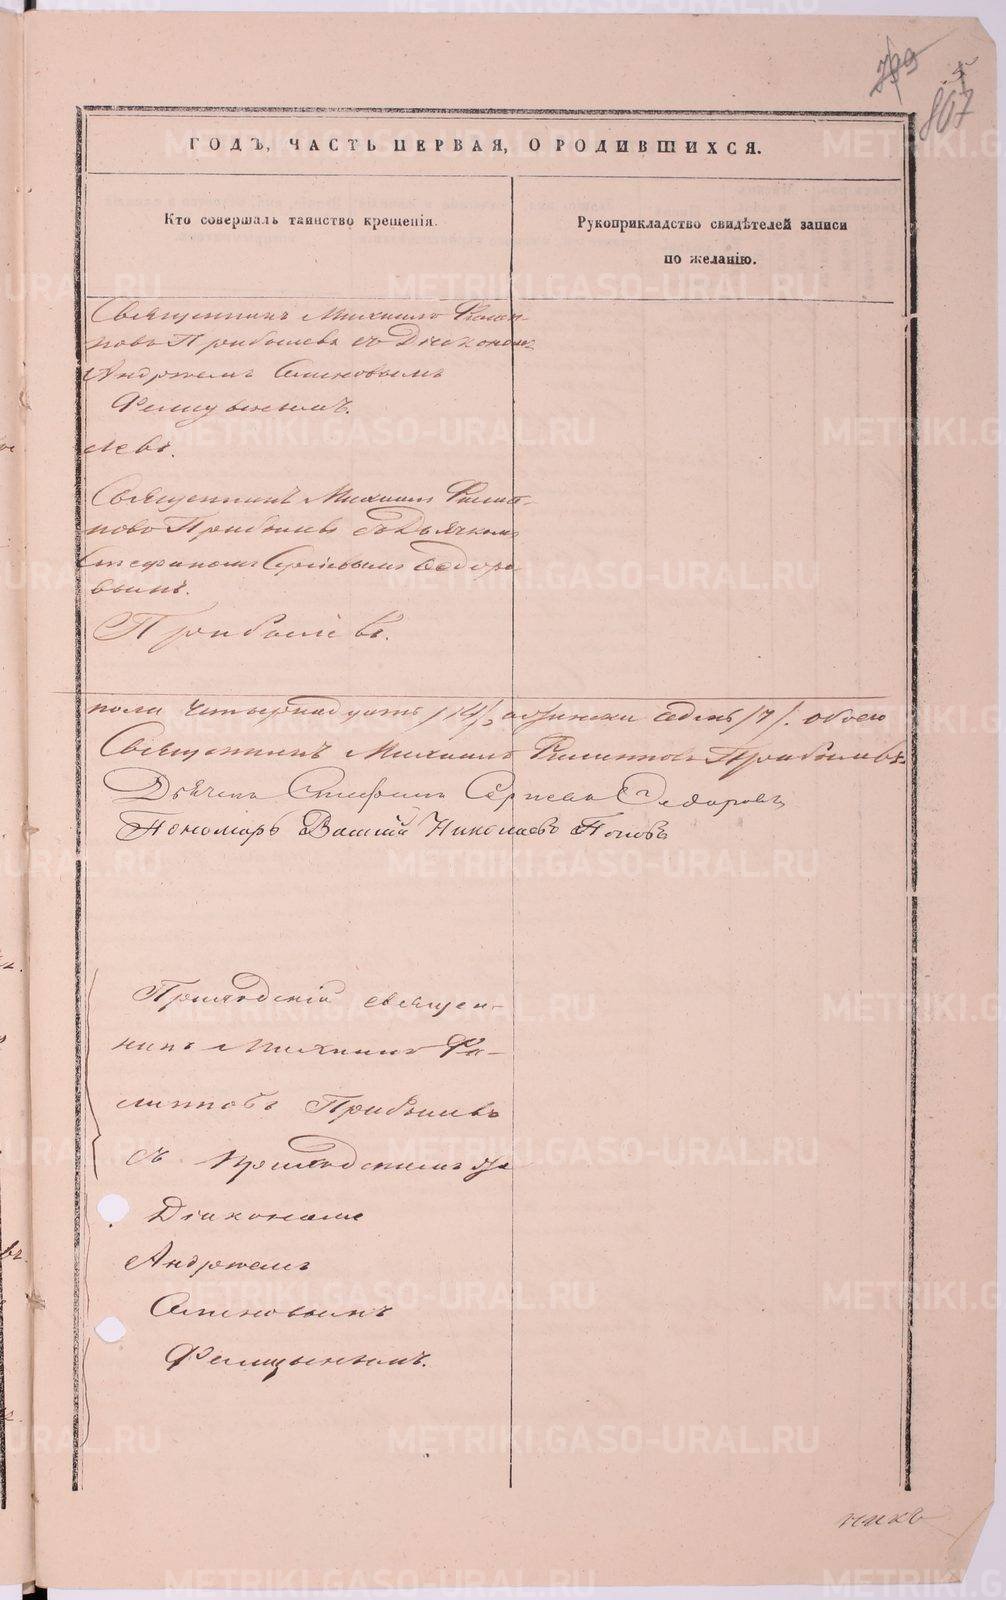 799
807
ГОДЪ, ЧАСТЬ ПЕРВАЯ, О РОДИВШИХСЯ.
Кто совершалъ таинство крещенія.
Рукоприкладство свидѣтелей записи
по желанію.
Священникъ Михаилъ Филип-
повъ Прибылевъ съ Діакономъ
Андреемъ Семеновымъ
Фелицынымъ.
левъ.
Священникъ Михаилъ Филип-
повъ Прибылевъ съ Дьячкомъ
Стефаномъ Сергѣевымъ Ѳедоро-
вымъ.
Прибылевъ.
пола четырнадцать /14/, женска седмь /7/. обоего
Священникъ Михаилъ Филипповъ Прибылевъ.
Дьячекъ Стефанъ Сергѣевъ Ѳедоровъ
Пономарь Василій Николаевъ Поповъ
Приходскій священ-
никъ Михаилъ Фи-
липповъ Прибылевъ
съ приходскимъ же
Діакономъ
Андреемъ
Семеновымъ
Фелицынымъ.
никъ
METRIKI.GASO-URAL.RU